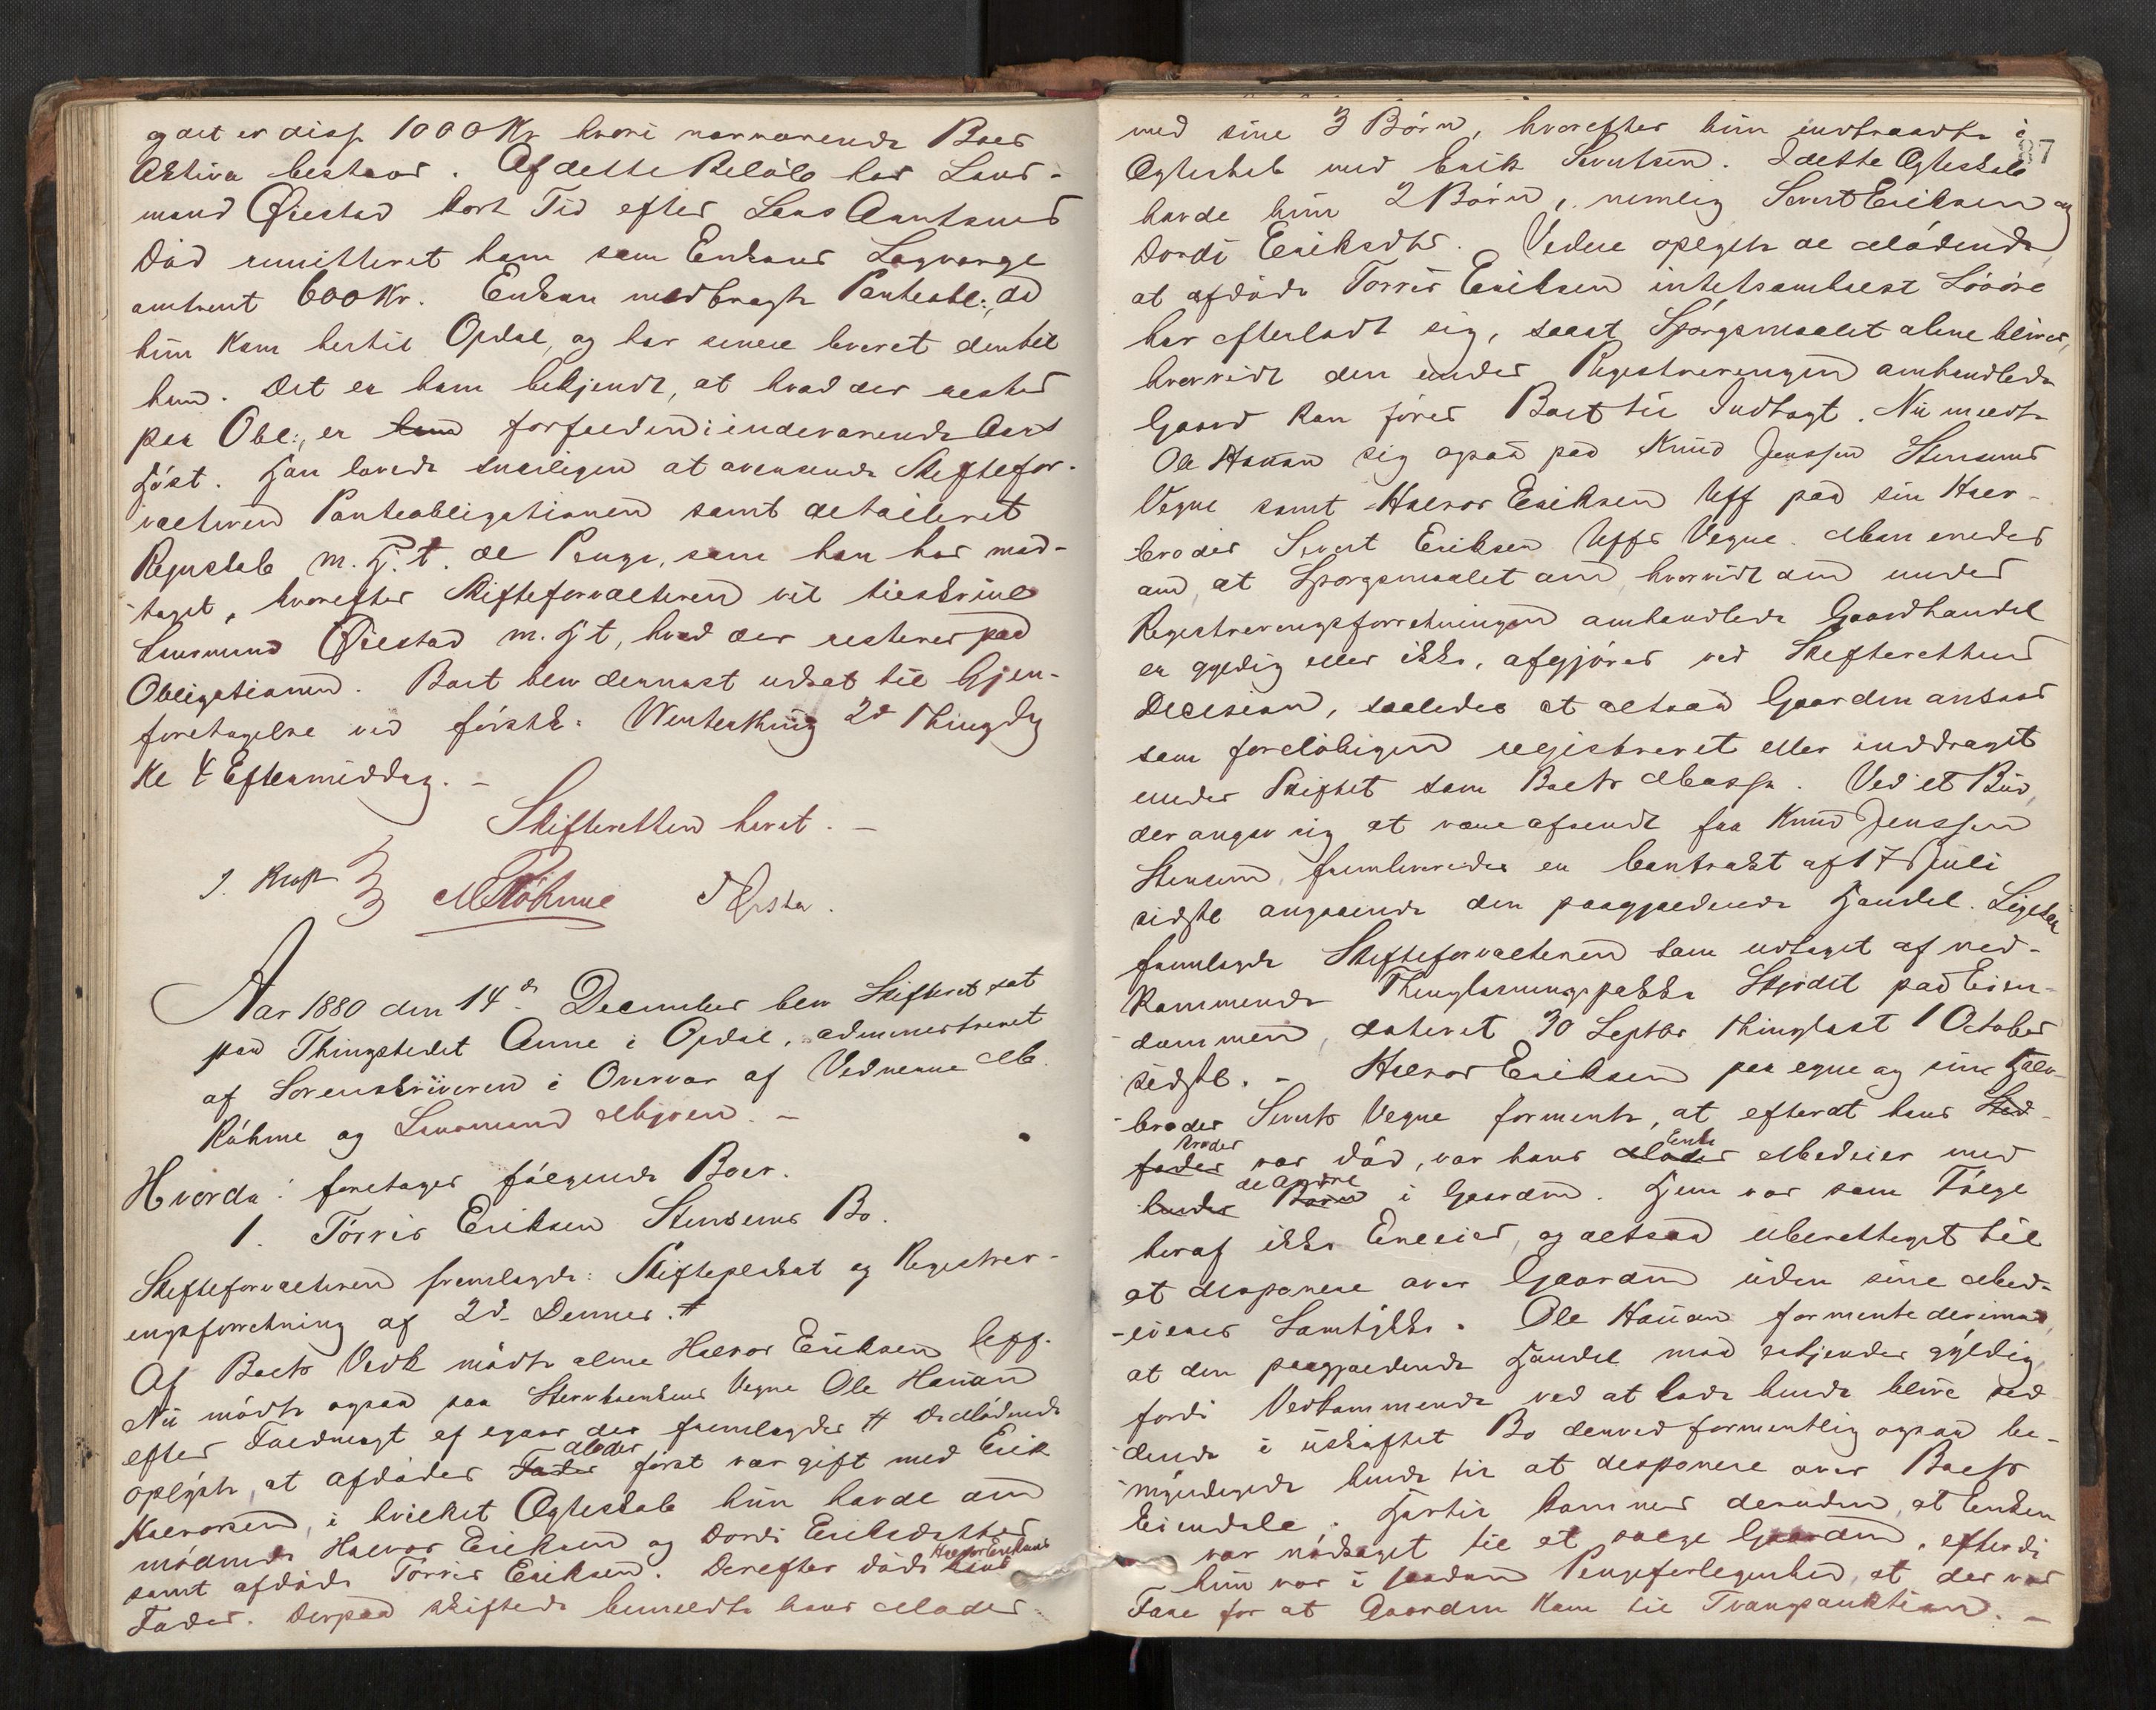 og det er disse 1000 Kr hvori nærværende Boes
Aktiva bestaar. Af dette Beløb har Lens-
mand Øiestad kort Tid efter Lars Aamtsens
Død remitteret ham som Enkens Lagværge
omtrent 600 Kr. Enken medbragte Panteobl:, da
hun kom hertil Opdal, og har senere leveret den til
ham. Det er ham bekjendt, at hvad der rester
per Obl:, er forfalden i indeværende Aars
Høst. Han lovede snarligen at avensende Skiftefor-
valteren Panteobligationen samt detailleret
Regnskab m. H. t. de Penge, som han har mod-
taget, hvorefter Skifteforvalteren vil tilskrive
Lensmand Øiestad m. H t, hvad der resterer paa
Obligationen. Boet blev dernæst udsat til Gjen-
foretagelse ved første Vinterthing 2d Thingdag
Kl 4 Eftermiddag. –
Skifteretten hævet. –
J. Kraft M Røhme
Aar 1880 den 14de December blev Skifteret sat
paa Thingstedet Aune i Opdal, administreret
af Sorenskriveren i Overvær af Vidnerne M.
Røhme og Lensmand Mjøen. –
Hvorda: foretages følgende Boer.
1. Tørris Eriksen Stensems Bo.
Skifteforvalteren fremlagde: Skifteplakat og Registrer-
ingsforretning af 2d Dennes. #
Af Boets Vedk mødte alene Halvor Eriksen Uff.
Nu mødte ogsaa paa Stervboenkens Vegne Ole Hauan
efter Fuldmagt af egaar der fremlagdes # De Mødende
oplyste, at afdødes Fader Moder først var gift med Erik
Halvorsen, i hvilket Ægteskab hun havde om
mødende Halvor Eriksen og Dordi Eriksdatter
samt afdøde Tørris Eriksen. Derefter døde hans Halvor Eriksens
Fader. Derpaa skiftede bemeldte hans Moder
87
med sine 3 Børn, hvorefter hun indtraadte i
Ægteskab med Erik Sivertsen. I dette Ægteskab
havde hun 2 Børn, nemlig Sivert Eriksen og
Dordi Eriksdtr. Videre oplyste de Mødende,
at afdøde Tørris Eriksen intetsomhelst Løsøre
har efterladt sig, saaat Spørgsmaalet alene bliver,
hvorvidt den under Registreringen omhandlede
Gaard kan føres Boet til Indtægt. Nu meldte
Ole Hauan sig ogsaa paa Knud Jenssen Stensems
Vegne samt Halvor Eriksen Uff paa sin Halv-
broder Sivert Eriksen Uffs Vegne. Man enedes
om, at Spørgsmaalet om, hvorvidt den under
Registreringsforretningen omhandlede Gaardhandel
er gyldig eller ikke, afgjøres ved Skifterettens
Decision, saaledes at altsaa Gaarden ansaaes
som foreløbigen registreret eller inddraget
under Skiftet som Boets Masse. Ved et Bud,
der angav sig at være afsendt fra Knud Jenssen
Stensem, fremleveredes en Contrakt af 17 Juli
sidstl angaaende den paagjældende Handel. Ligesaa
fremlagde Skifteforvalteren som udtaget af ved-
kommende Thinglæsningspakke Skjødet paa Eien-
dommen, dateret 30 Septbr thinglæst 1 October
sidstl. – Halvor Eriksen paa egne og sin Halv-
broder Siverts Vegne formente, at efterat hans Sted-
fader broder var død, var hans Moder Enke Medeier med
hendes Børn de andre i Gaarden. Hun var som Følge
heraf ikke Eneeier, og altsaa uberettiget til
at disponere over Gaarden uden sine Med-
eieres Samtykke. Ole Hauan formente derimod,
at den paagjældende Handel maa erkjendes gyldig,
fordi Vedkommende ved at lade hende blive sid-
dende i uskiftet Bo derved formentlig ogsaa be-
myndigede hende til at disponere over Boets
Eiendele. Hertil kommer desuden, at Enken
var nødsaget til at sælge Gaarden, efterdi
hun var i saadan Pengeforlegenhed, at der var
Fare for at Gaarden kom til Tvangsauktion. –